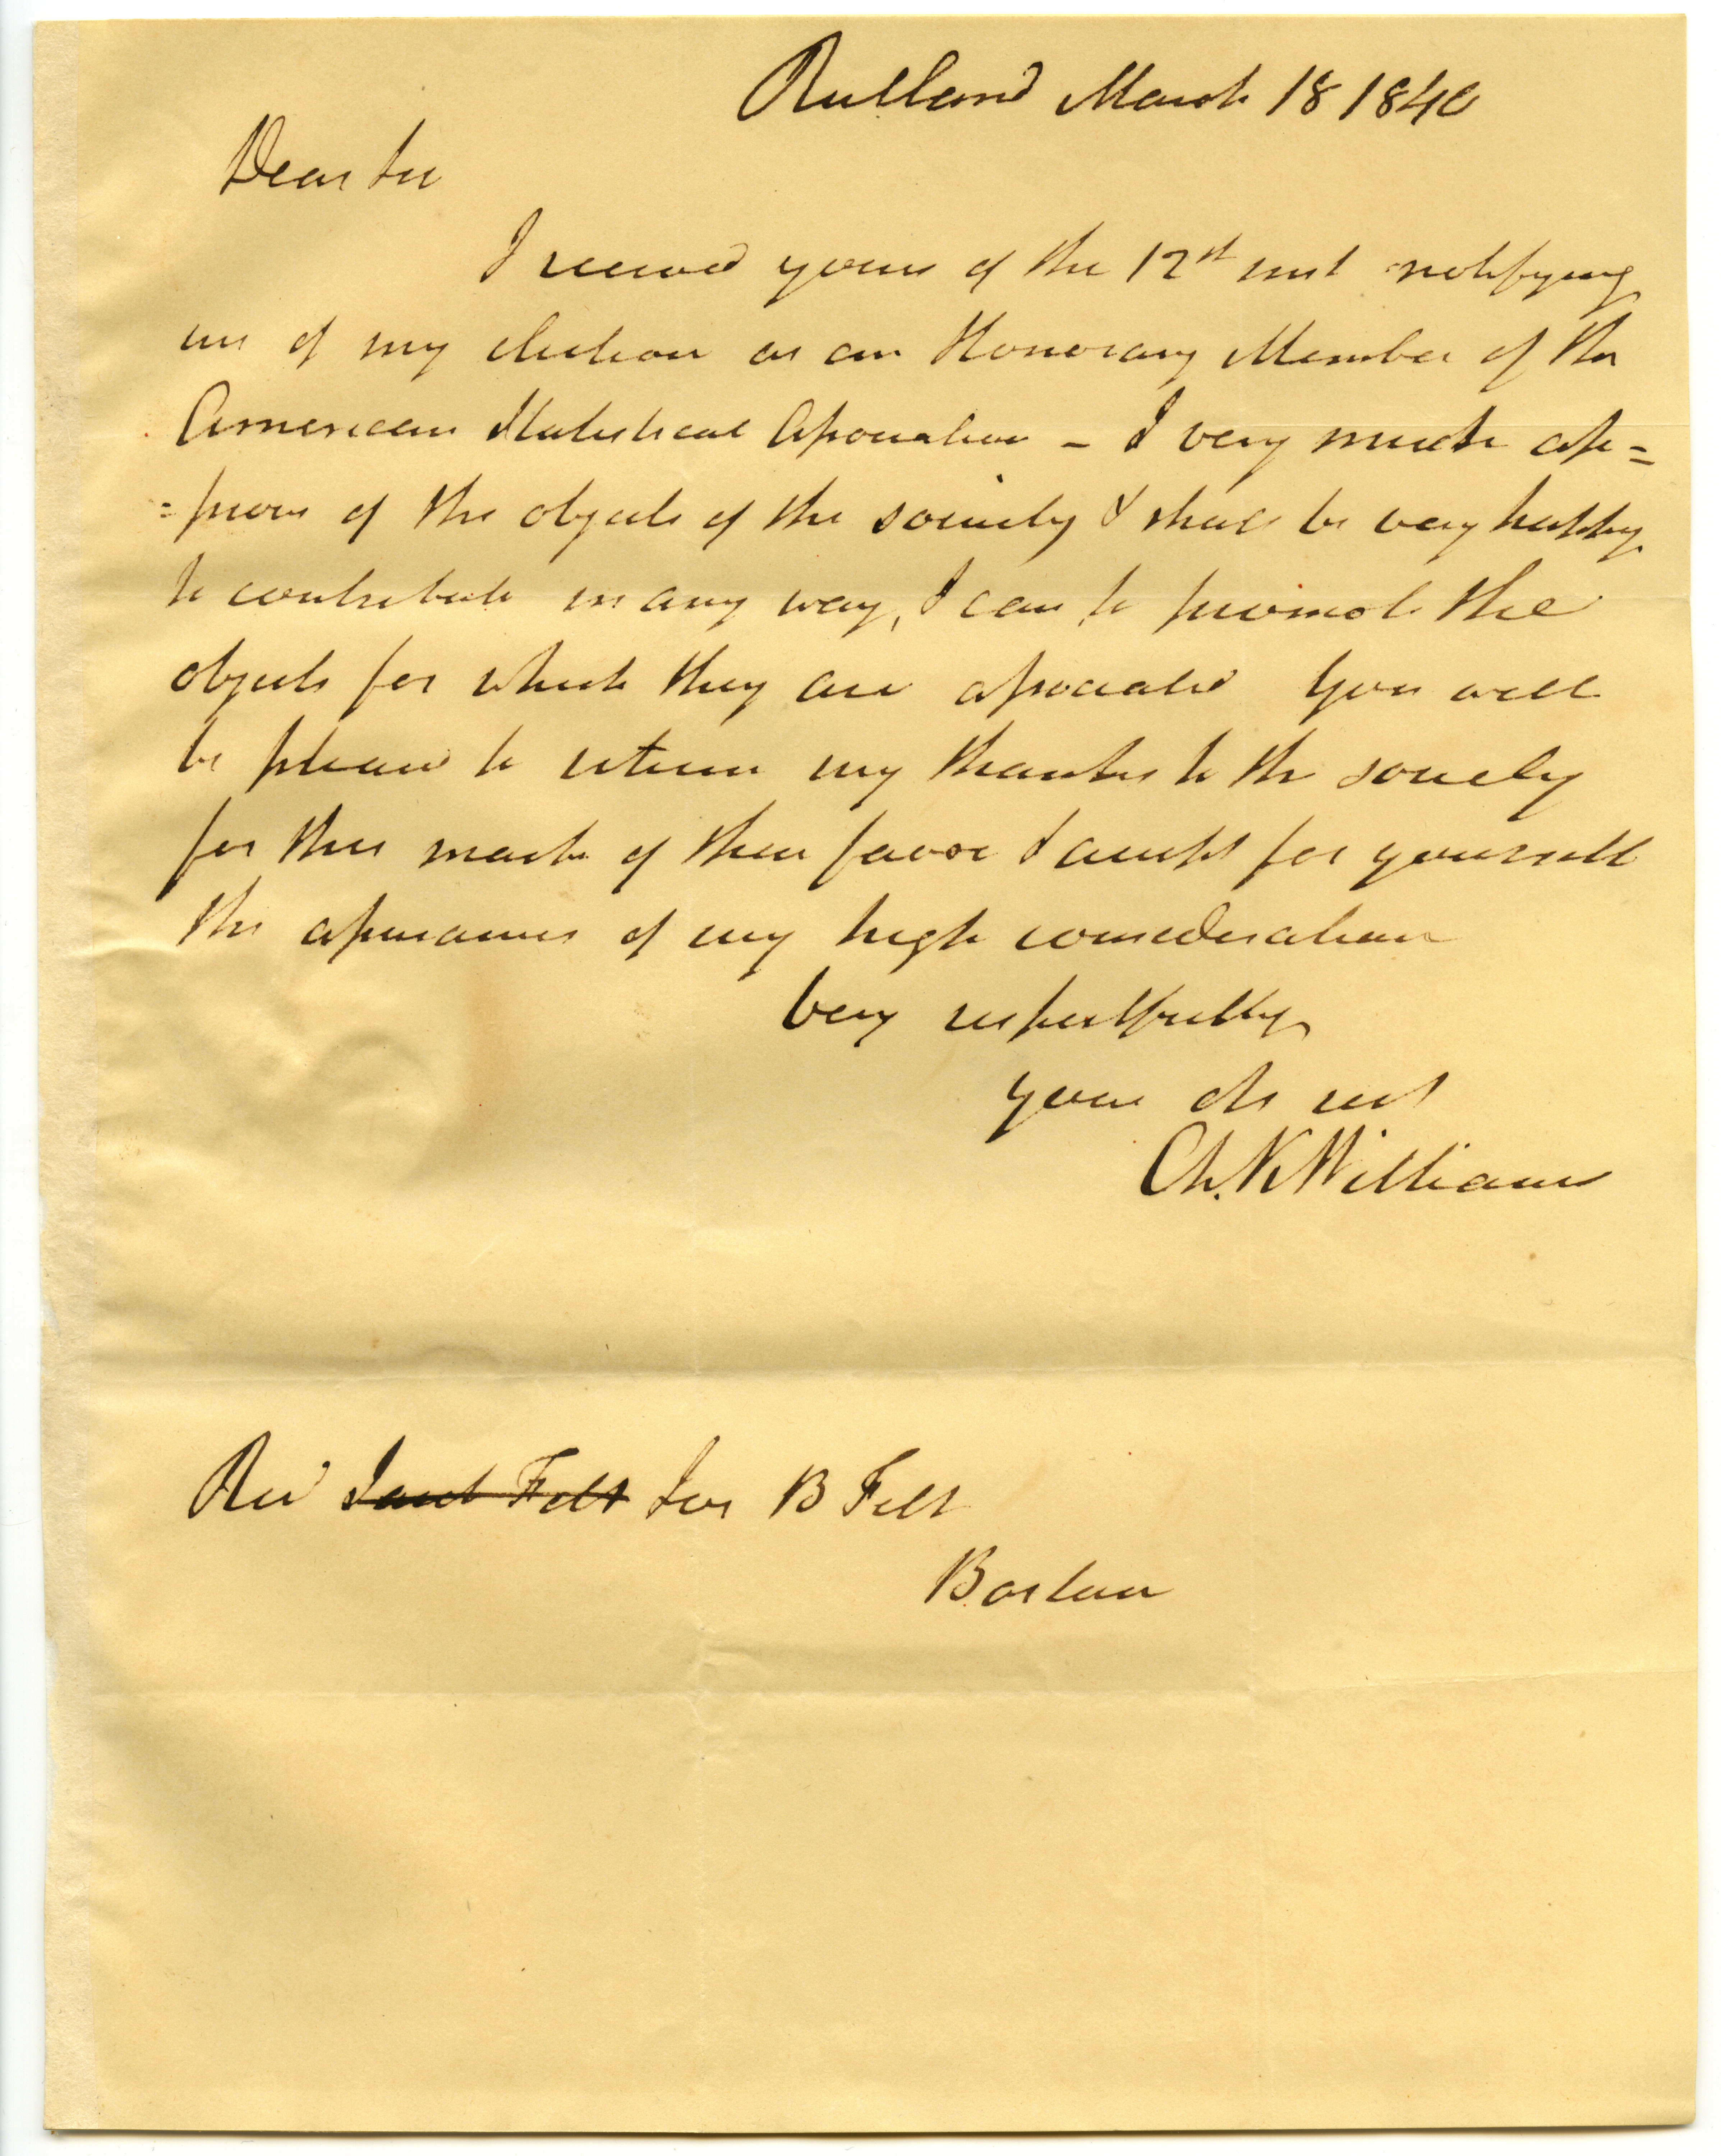 Rutland March 18 1840
Dear Sir
I received yours of the 12st inst notifying
me of my election as an Honorary Member of the
American Statistical Association – I very much ap=
=prove of the objects of the society & shall be very happy
to contribute in any way, I can to promote the
objects for which they are associated You will
be pleased to return my thanks to the society
for this mark of their favor & accept for yourself
the assurances of my high consideration
Very respectfully
your ob svt
Ch. K Williams
Revd Felt Jos B Felt
Boston